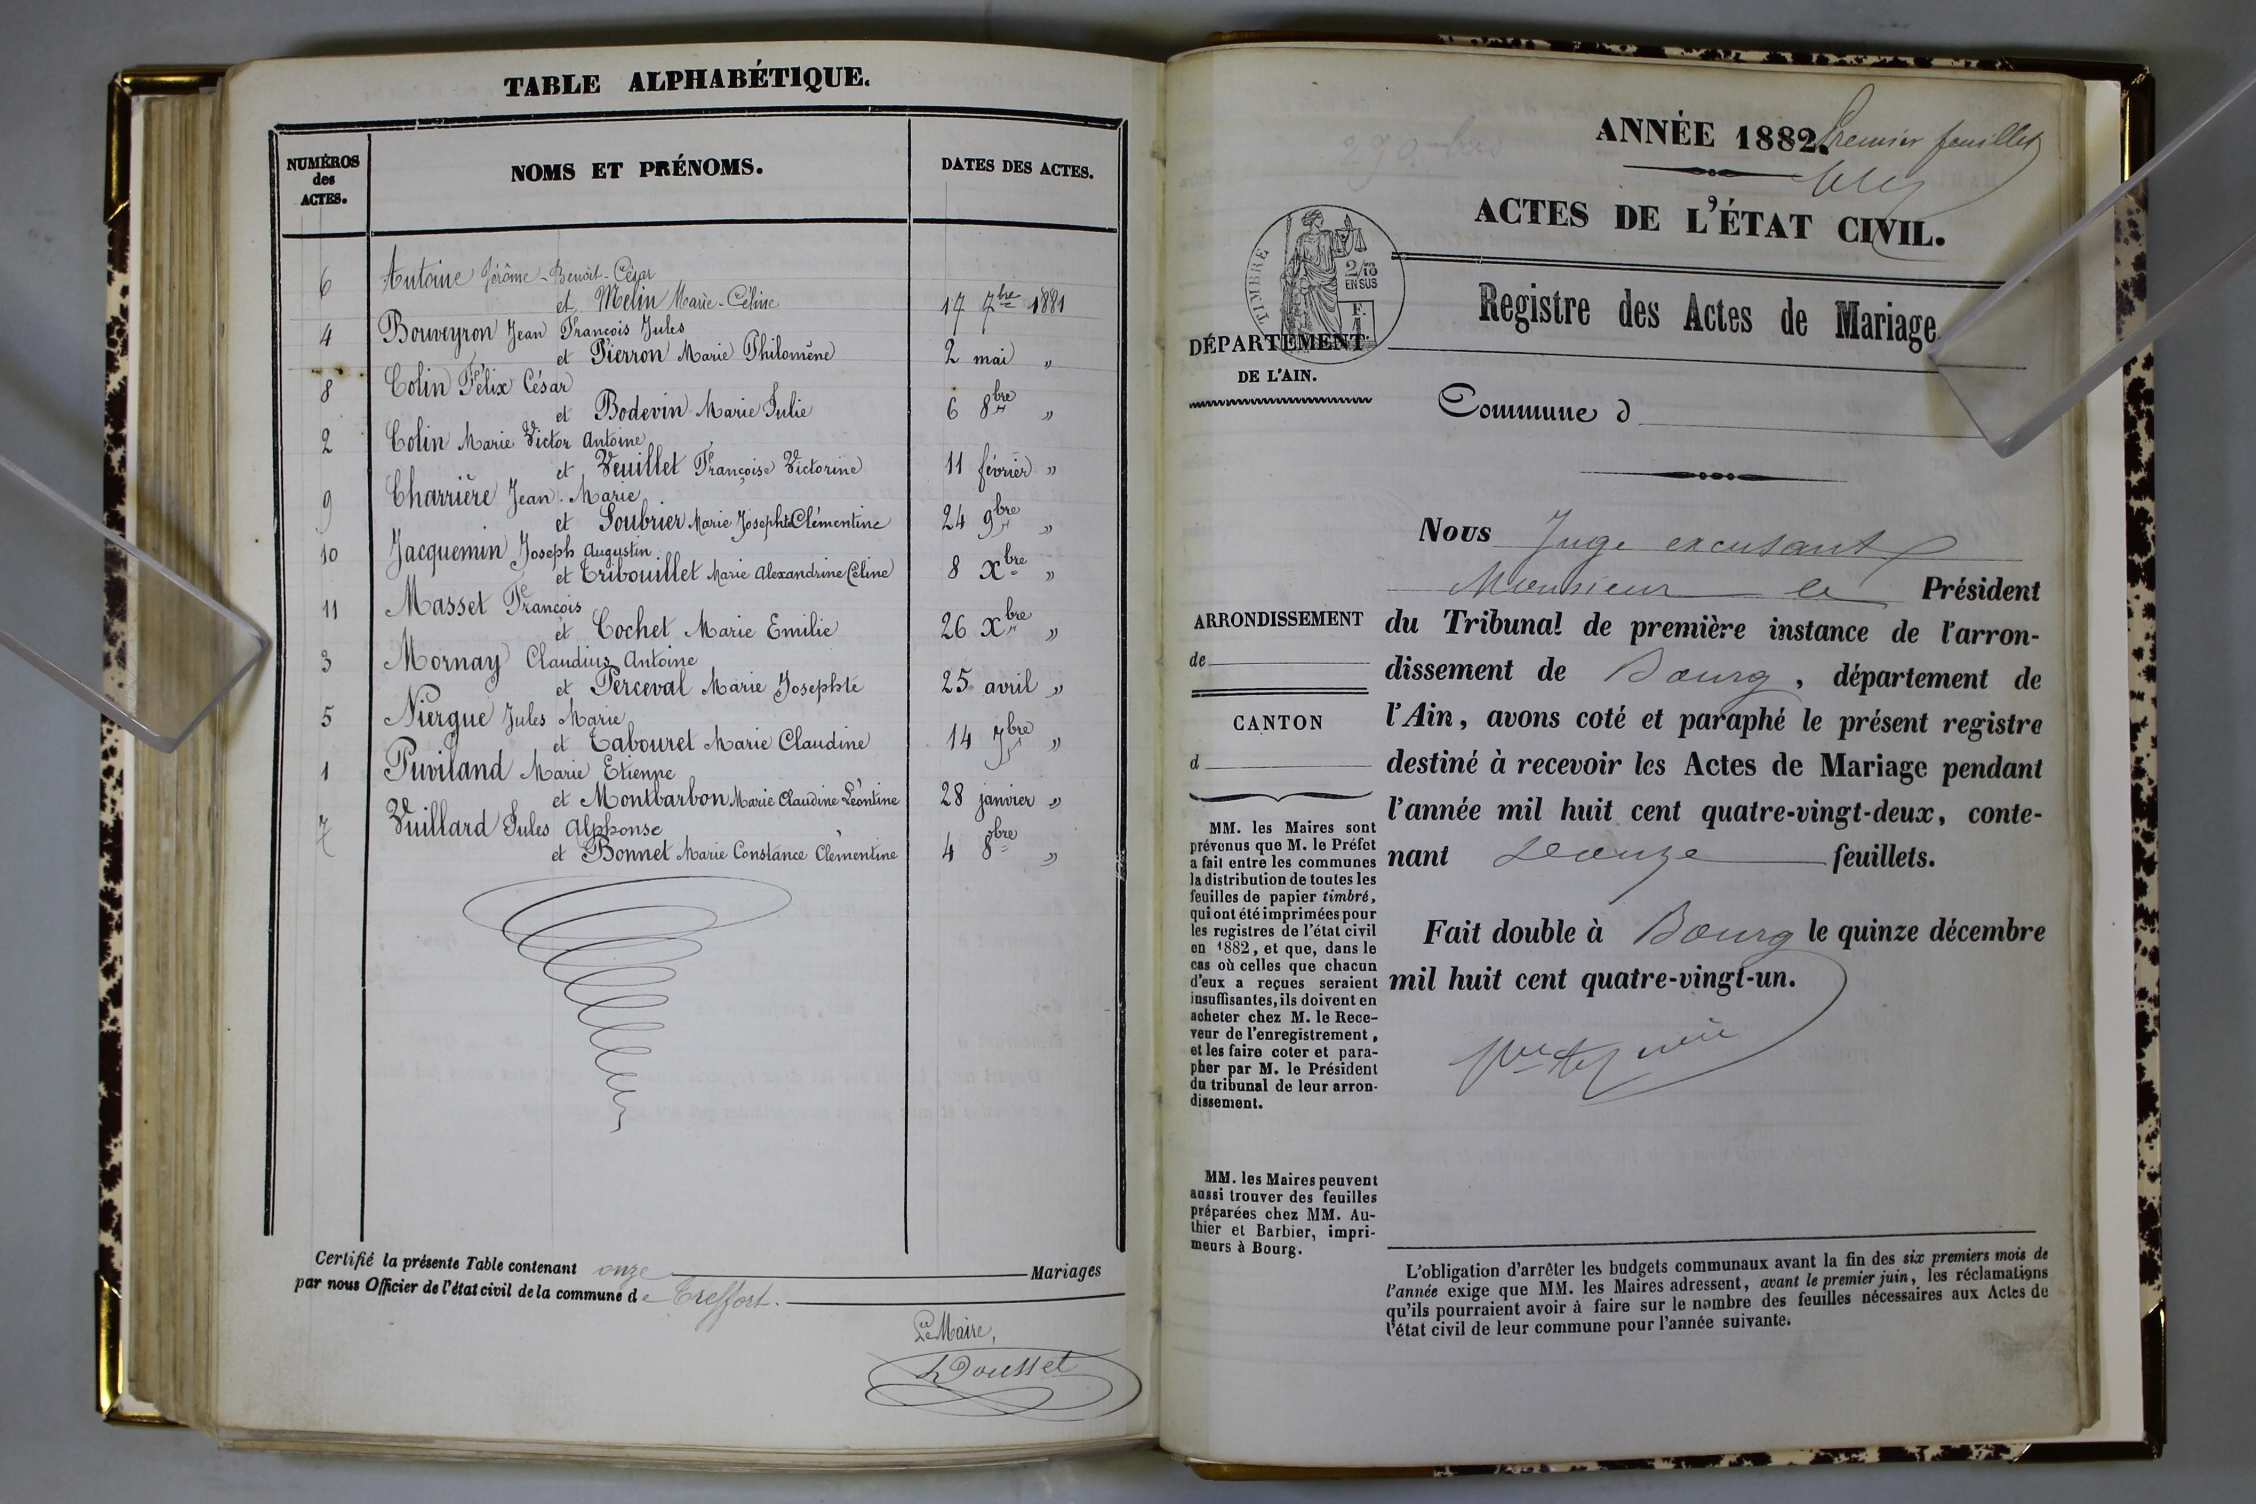 TABLE ALPHABÉTIQUE.
NUMÉROS
des
ACTES.
NOMS ET PRÉNOMS.
DATES DES ACTES.
6 Antoine Jérôme-Benoit-César
et Melin Marie-Céline 17 7bre 1881
4 Bouveyron Jean François Jules
et Pierron Marie Philomène 2 mai "
8 Colin Félix César
et Bodevin Marie Julie 6 8bre "
2 Colin Marie Victor Antoine
et Veuillet Françoise Victorine 11 février "
9 Charrière Jean-Marie
et Soubrier Marie Josephte Clémentine 24 9bre "
10 Jacquemin Joseph Augustin
et Tribouillet Marie Alexandrine Céline 8 Xbre "
11 Masset François
et Cochet Marie Emilie 26 Xbre "
3 Mornay Claudius Antoine
et Perceval Marie Josephte 25 avril "
5 Niergue Jules Marie
et Tabouret Marie Claudine 14 7bre "
1 Puviland Marie Etienne
et Montbarbon Marie Claudine Léontine 28 janvier "
7 Vuillard Jules Alphonse
et Bonnet Marie Constance Clémentine 4 8bre "
Certifié la présente Table contenant onze Mariages
par nous Officier de l'état civil de la commune de Treffort.
Le Maire,
Dousset
Premier feuillet
ANNÉE 1882.
ACTES DE L'ÉTAT CIVIL.
TIMBRE
2/10
EN SUS
F.
1
Registre des Actes de Mariage
DÉPARTEMENT
DE L'AIN.
Commune d
ARRONDISSEMENT
de
CANTON
d
MM. les Maires sont
prévenus que M. le Préfet
a fait entre les communes
la distribution de toutes les
feuilles de papier timbré,
qui ont été imprimées pour
les registres de l'état civil
en 1882, et que, dans le
cas où celles que chacun
d'eux a reçues seraient
insuffisantes, ils doivent en
acheter chez M. le Rece-
veur de l'enregistrement,
et les faire coter et para-
pher par M. le Président
du tribunal de leur arron-
dissement.
MM. les Maires peuvent
aussi trouver des feuilles
préparées chez MM. Au-
thier et Barbier, impri-
meurs à Bourg.
Nous Juge excusant
Monsieur le Président
du Tribunal de première instance de l'arron-
dissement de Bourg, département de
l'Ain, avons coté et paraphé le présent registre
destiné à recevoir les Actes de Mariage pendant
l'année mil huit cent quatre-vingt-deux, conte-
nant feuillets.
Fait double à Bourg le quinze décembre
mil huit cent quatre-vingt-un.
L'obligation d'arrêter les budgets communaux avant la fin des six premiers mois de
l'année exige que MM. les Maires adressent, avant le premier juin, les réclamations
qu'ils pourraient avoir à faire sur le nombre des feuilles nécessaires aux Actes de
l'état civil de leur commune pour l'année suivante.